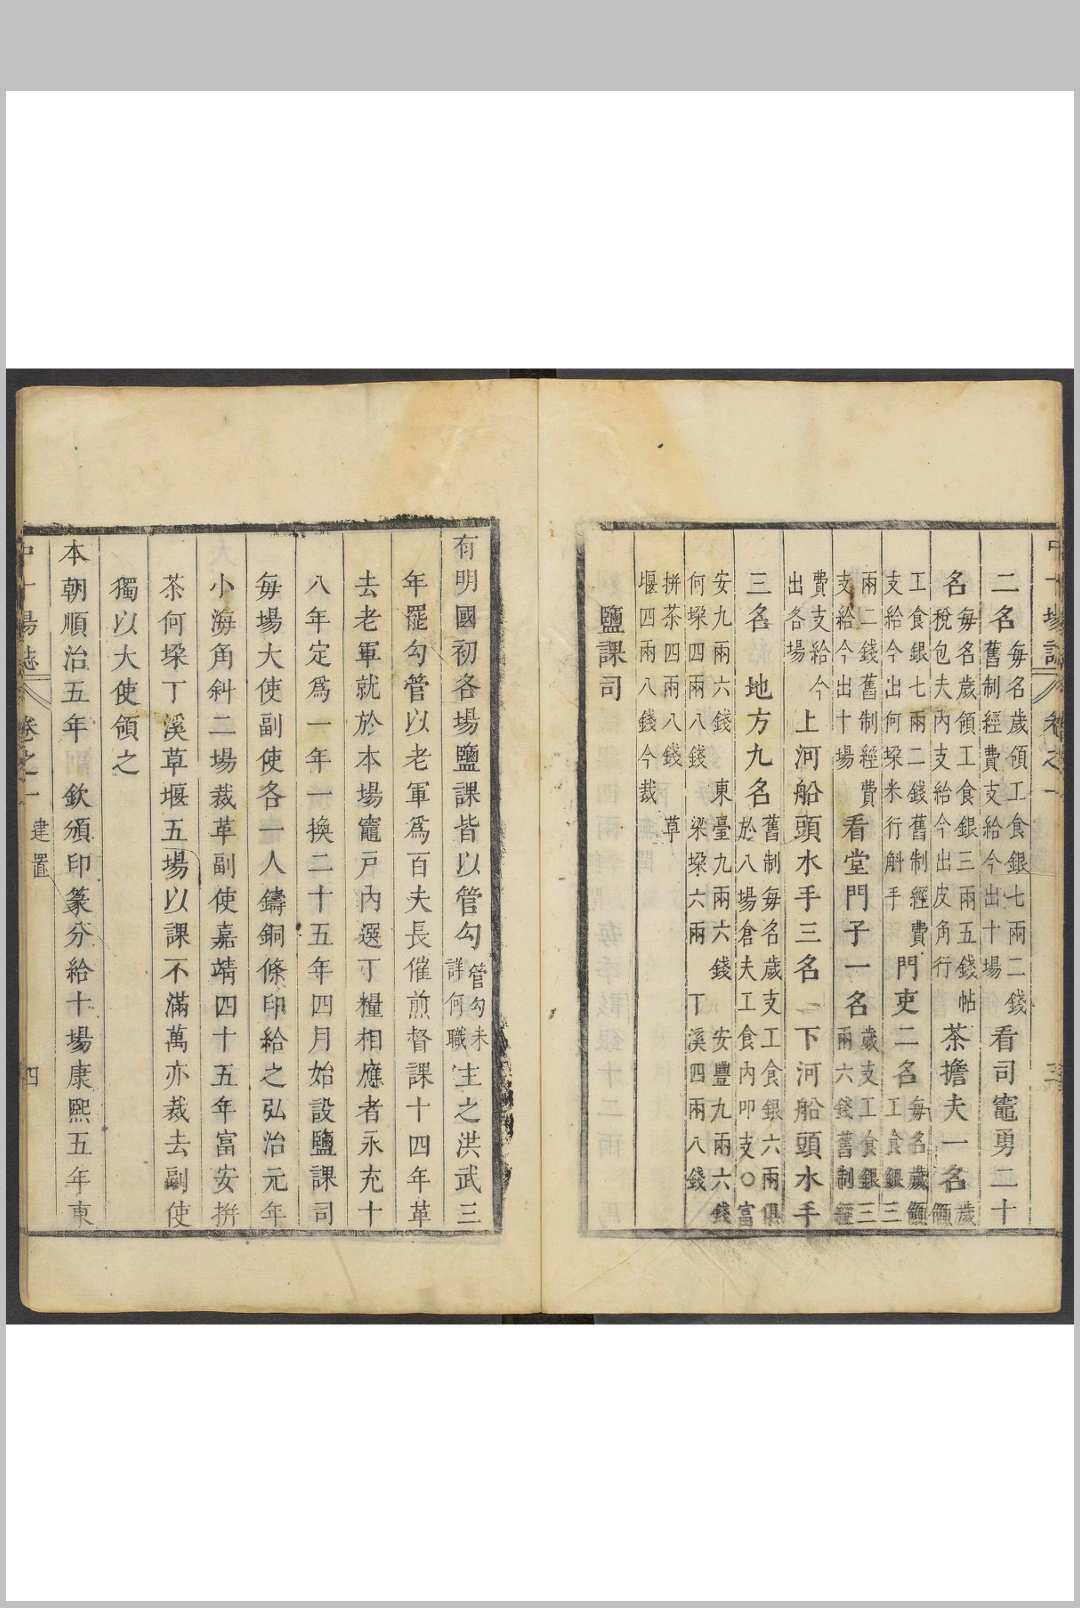 中十場誌 卷之一 三
二名每名歲領工食銀七兩二錢舊制經費支給今出十場看司竈勇二十
名每名歲領工食銀三兩五錢帖稅包夫內支給今出皮角行茶擔夫一名歲領
工食銀七兩二錢舊制經費支給今出何垛米行斛手門吏二名每名歲領工食銀三
兩二錢舊制經費支給今出十場看堂門子一名歲支工食銀三兩六錢舊制經
費支給今出各場上河船頭水手三名下河船頭水手
三名地方九名舊制每名歲支工食銀六兩俱於八場倉夫工食內叩支〇富
安九兩六錢 東臺九兩六錢 安豐九兩六錢
何垛四兩八錢 梁垛六兩 丁溪四兩八錢
拼茶四兩八錢 草
堰四兩八錢今裁
鹽課司
有明國初各場鹽課皆以管勾管勾未詳何職主之洪武三
年罷勾管以老軍爲百夫長催煎督課十四年革
去老軍就於本場竈戶內選丁糧相應者永充十
八年定爲一年一換二十五年四月始設鹽課司
每場大使副使各一人鑄銅條印給之弘治元年
小海角斜二場裁革副使嘉靖四十五年富安拼
茶何垛丁溪草堰五場以課不滿萬亦裁去副使
獨以大使領之
本朝順治五年 欽頒印篆分給十場康熙五年東
中十場誌 卷之一 建置 四